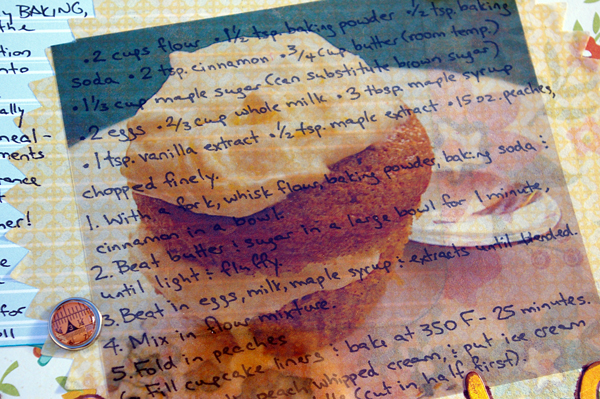 y BAKING,
the
tion
nto
ally
neal-
ments
rance
f
ner!
for
oll
• 2 cups flour • 1 1/2 tsp. baking powder • 1/2 tsp. baking
soda • 2 tsp. cinnamon • 3/4 cup butter (room temp.)
• 1 1/3 cup maple sugar (can substitute brown sugar)
• 2 eggs • 2/3 cup whole milk • 3 tbsp. maple syrup
• 1 tsp. vanilla extract • 1/2 tsp. maple extract • 15 oz. peaches,
chopped finely.
1. With a fork, whisk flour, baking powder, baking soda &
cinnamon in a bowl.
2. Beat butter & sugar in a large bowl for 1 minute,
until light & fluffy.
3. Beat in eggs, milk, maple syrup & extracts until blended.
4. Mix in flour mixture.
5. Fold in peaches
6. Fill cupcake liners & bake at 350 F - 25 minutes.
peach whipped cream, & put ice cream
(cut in half first).